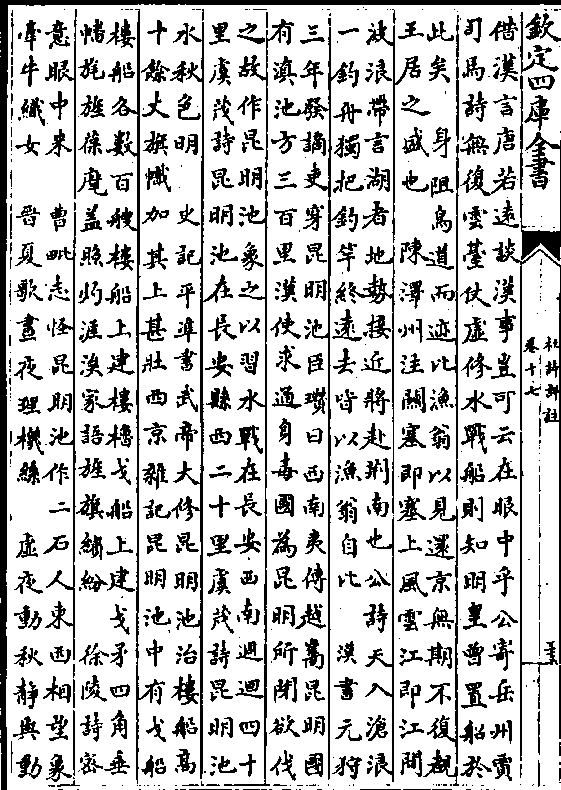 欽定四庫全書
杜詩詳註
卷十七
借漢言唐若遠談漢事豈可云在眼中乎公寄岳州賈
司馬詩無復雲臺仗虛修水戰船則知明皇曾置船於
此矣 身阻鳥道而迹比漁翁以見還京無期不復覩
王居之盛也 陳澤州注關塞即塞上風雲江即江間
波浪帶言湖者地勢接近將赴荆南也公詩天入滄浪
一釣舟獨把釣竿終遠去皆以漁翁自比 漢書元狩
三年發謫吏穿昆明池臣瓚曰西南夷傳越嶲昆明國
有滇池方三百里漢使求通身毒國為昆明所閉欲伐
之故作昆明池象之以習水戰在長安西南週迴四十
里虞茂詩昆明池在長安縣西二十里虞茂詩昆明池
水秋色明 史記平準書武帝大修昆明池治樓船髙
十餘丈旗幟加其上甚壯西京雜記昆明池中有戈船
樓船各數百艘樓船上建樓櫓戈船上建戈矛四角垂
幡旄旌葆麾蓋照灼涯涘家語旌旗繽紛 徐陵詩密
意眼中來 曹毗志怪昆明池作二石人東西相望象
牽牛織女 晉夏歌晝夜理機絲 虛夜動秋靜與動